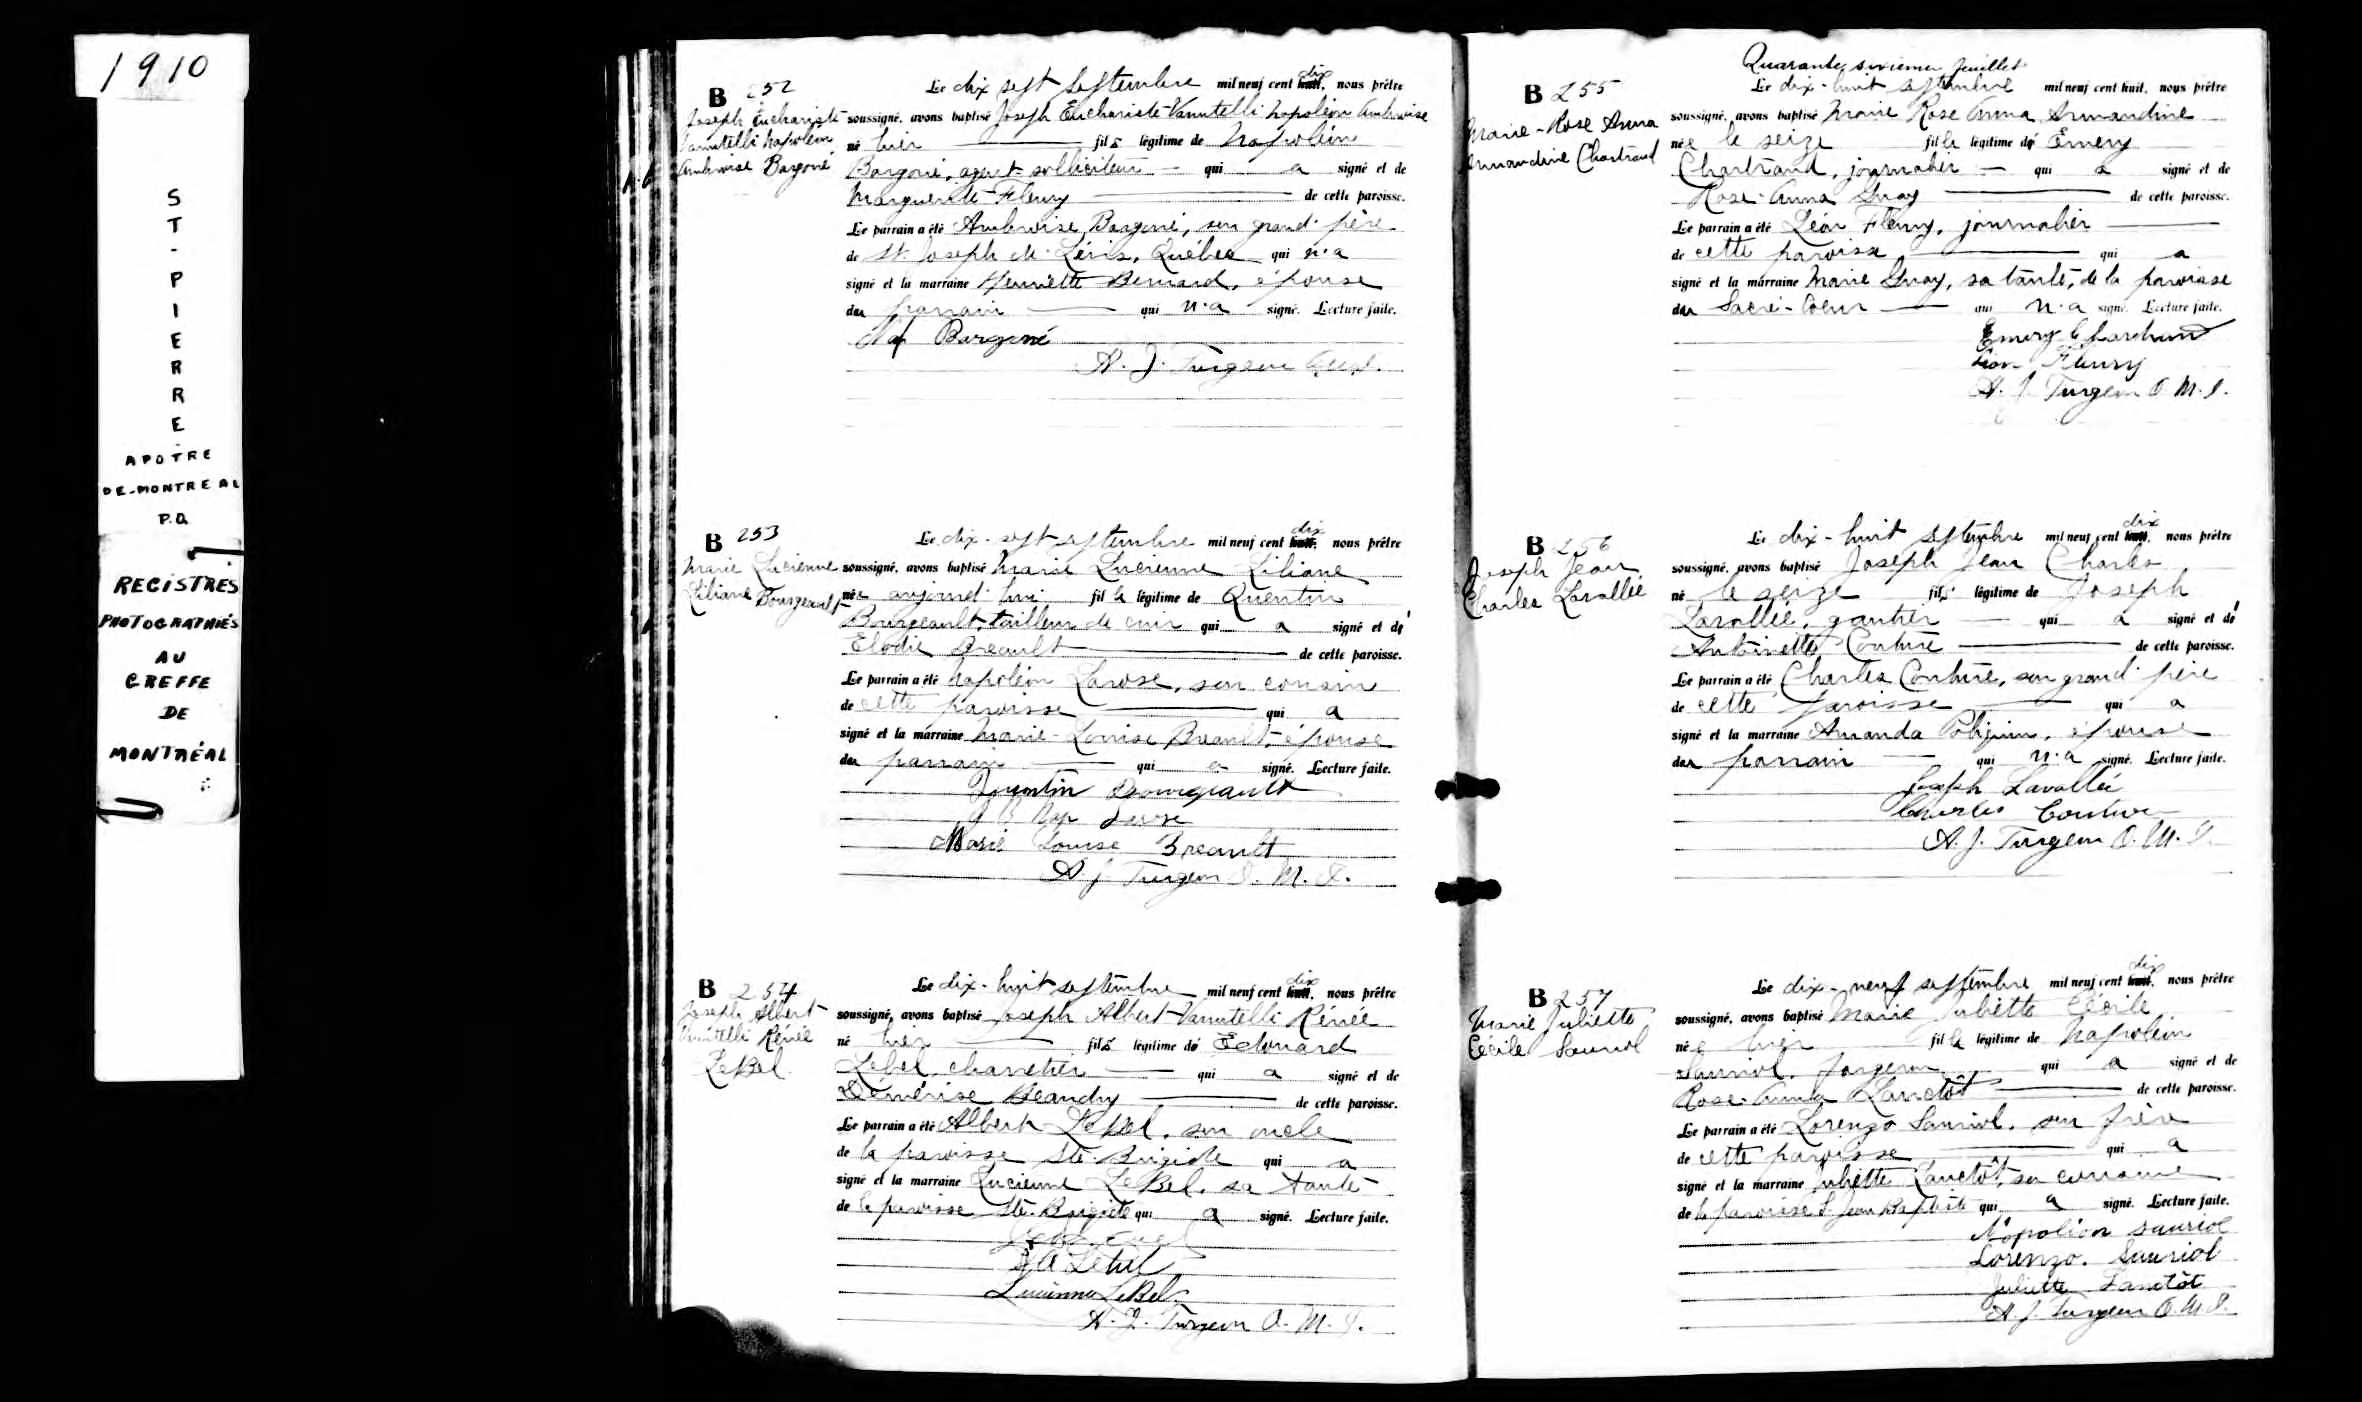 1910
ST-PIERRE
APÔTRE
DE-MONTREAL
P.Q.
REGISTRES
PHOTOGRAPHIÉS
AU
GREFFE
DE
MONTRÉAL
B 252
Joseph Euchariste
Vanutelli Napoléon
Ambroise Bargoné
Le dix sept septembre mil neuf cent huit, dix nous prêtre
soussigné, avons baptisé Joseph Euchariste Vanutelli Napoléon Ambroise
né hier fils légitime de Napoléon
Bargoné, agent-solliciteur qui a signé et de
Marguerite Fleury de cette paroisse.
Le parrain a été Ambroise Bargoné, son grand-père
de St. Joseph de Lévis, Québec qui n'a
signé et la marraine Henriette Bernard, épouse
du parrain qui n'a signé. Lecture faite.
Nap Bargoné
A. J. Turgeon
B 253
Marie Lucienne
Liliane Bourgeault
Le dix-sept septembre mil neuf cent huit, dix nous prêtre
soussigné, avons baptisé Marie Lucienne Liliane
née aujourd'hui fille légitime de Quentin
Bourgeault, tailleur de cuir qui a signé et de
Elodie Breault de cette paroisse.
Le parrain a été Napoléon Larose, son cousin
de cette paroisse qui a
signé et la marraine Marie-Louise Breault, épouse
du parrain qui a signé. Lecture faite.
Quentin Bourgeault
Nap Larose
Marie Louise Breault
A. J. Turgeon O. M. I.
B 254
Joseph Albert
Vanutelli Rénée
LeBel
Le dix-huit septembre mil neuf cent huit, dix nous prêtre
soussigné, avons baptisé Joseph Albert Vanutelli Rénée
né hier fils légitime de Edouard
Lebel, charretier qui a signé et de
Démérise Beaudry de cette paroisse.
Le parrain a été Albert LeBel, son oncle
de la paroisse Ste-Brigide qui a
signé et la marraine Lucienne LeBel, sa tante
de la paroisse Ste-Brigide qui a signé. Lecture faite.
A Lebel
Lucienne LeBel
A. J. Turgeon O. M. I.
Quarante sixième feuillet
B 255
Marie-Rose Anna
Armandine Chartrand
Le dix-huit septembre mil neuf cent huit, nous prêtre
soussigné, avons baptisé Marie Rose Anna Armandine
née le seize fille légitime de Émery
Chartrand, journalier qui a signé et de
Rose-Anna Guay de cette paroisse.
Le parrain a été Léon Fleury, journalier
de cette paroisse qui a
signé et la marraine Marie Guay, sa tante, de la paroisse
du Sacré-Coeur qui n'a signé. Lecture faite.
Emery Chartrand
Léon Fleury
A. J. Turgeon O. M. I.
B 256
Joseph Jean
Charles Lavallée
Le dix-huit septembre mil neuf cent huit, dix nous prêtre
soussigné, avons baptisé Joseph Jean Charles
né le seize fils légitime de Joseph
Lavallée, gantier qui a signé et de
Antoinette Couture de cette paroisse.
Le parrain a été Charles Couture, son grand-père
de cette paroisse qui a
signé et la marraine Amanda épouse
du parrain qui n'a signé. Lecture faite.
Joseph Lavallée
Charles Couture
A. J. Turgeon O. M. I.
B 257
Marie Juliette
Cécile Sauriol
Le dix-neuf septembre mil neuf cent huit, dix nous prêtre
soussigné, avons baptisé Marie Juliette Cécile
née hier fille légitime de Napoléon
Sauriol, forgeron qui a signé et de
Rose-Anna Lanctôt de cette paroisse.
Le parrain a été Lorenzo Sauriol, son frère
de cette paroisse qui a
signé et la marraine Juliette Lanctôt, sa cousine
de la paroisse S. Jean Baptiste qui a signé. Lecture faite.
Napoléon Sauriol
Lorenzo. Sauriol
Juliette Lanctôt
A. J. Turgeon O. M. I.